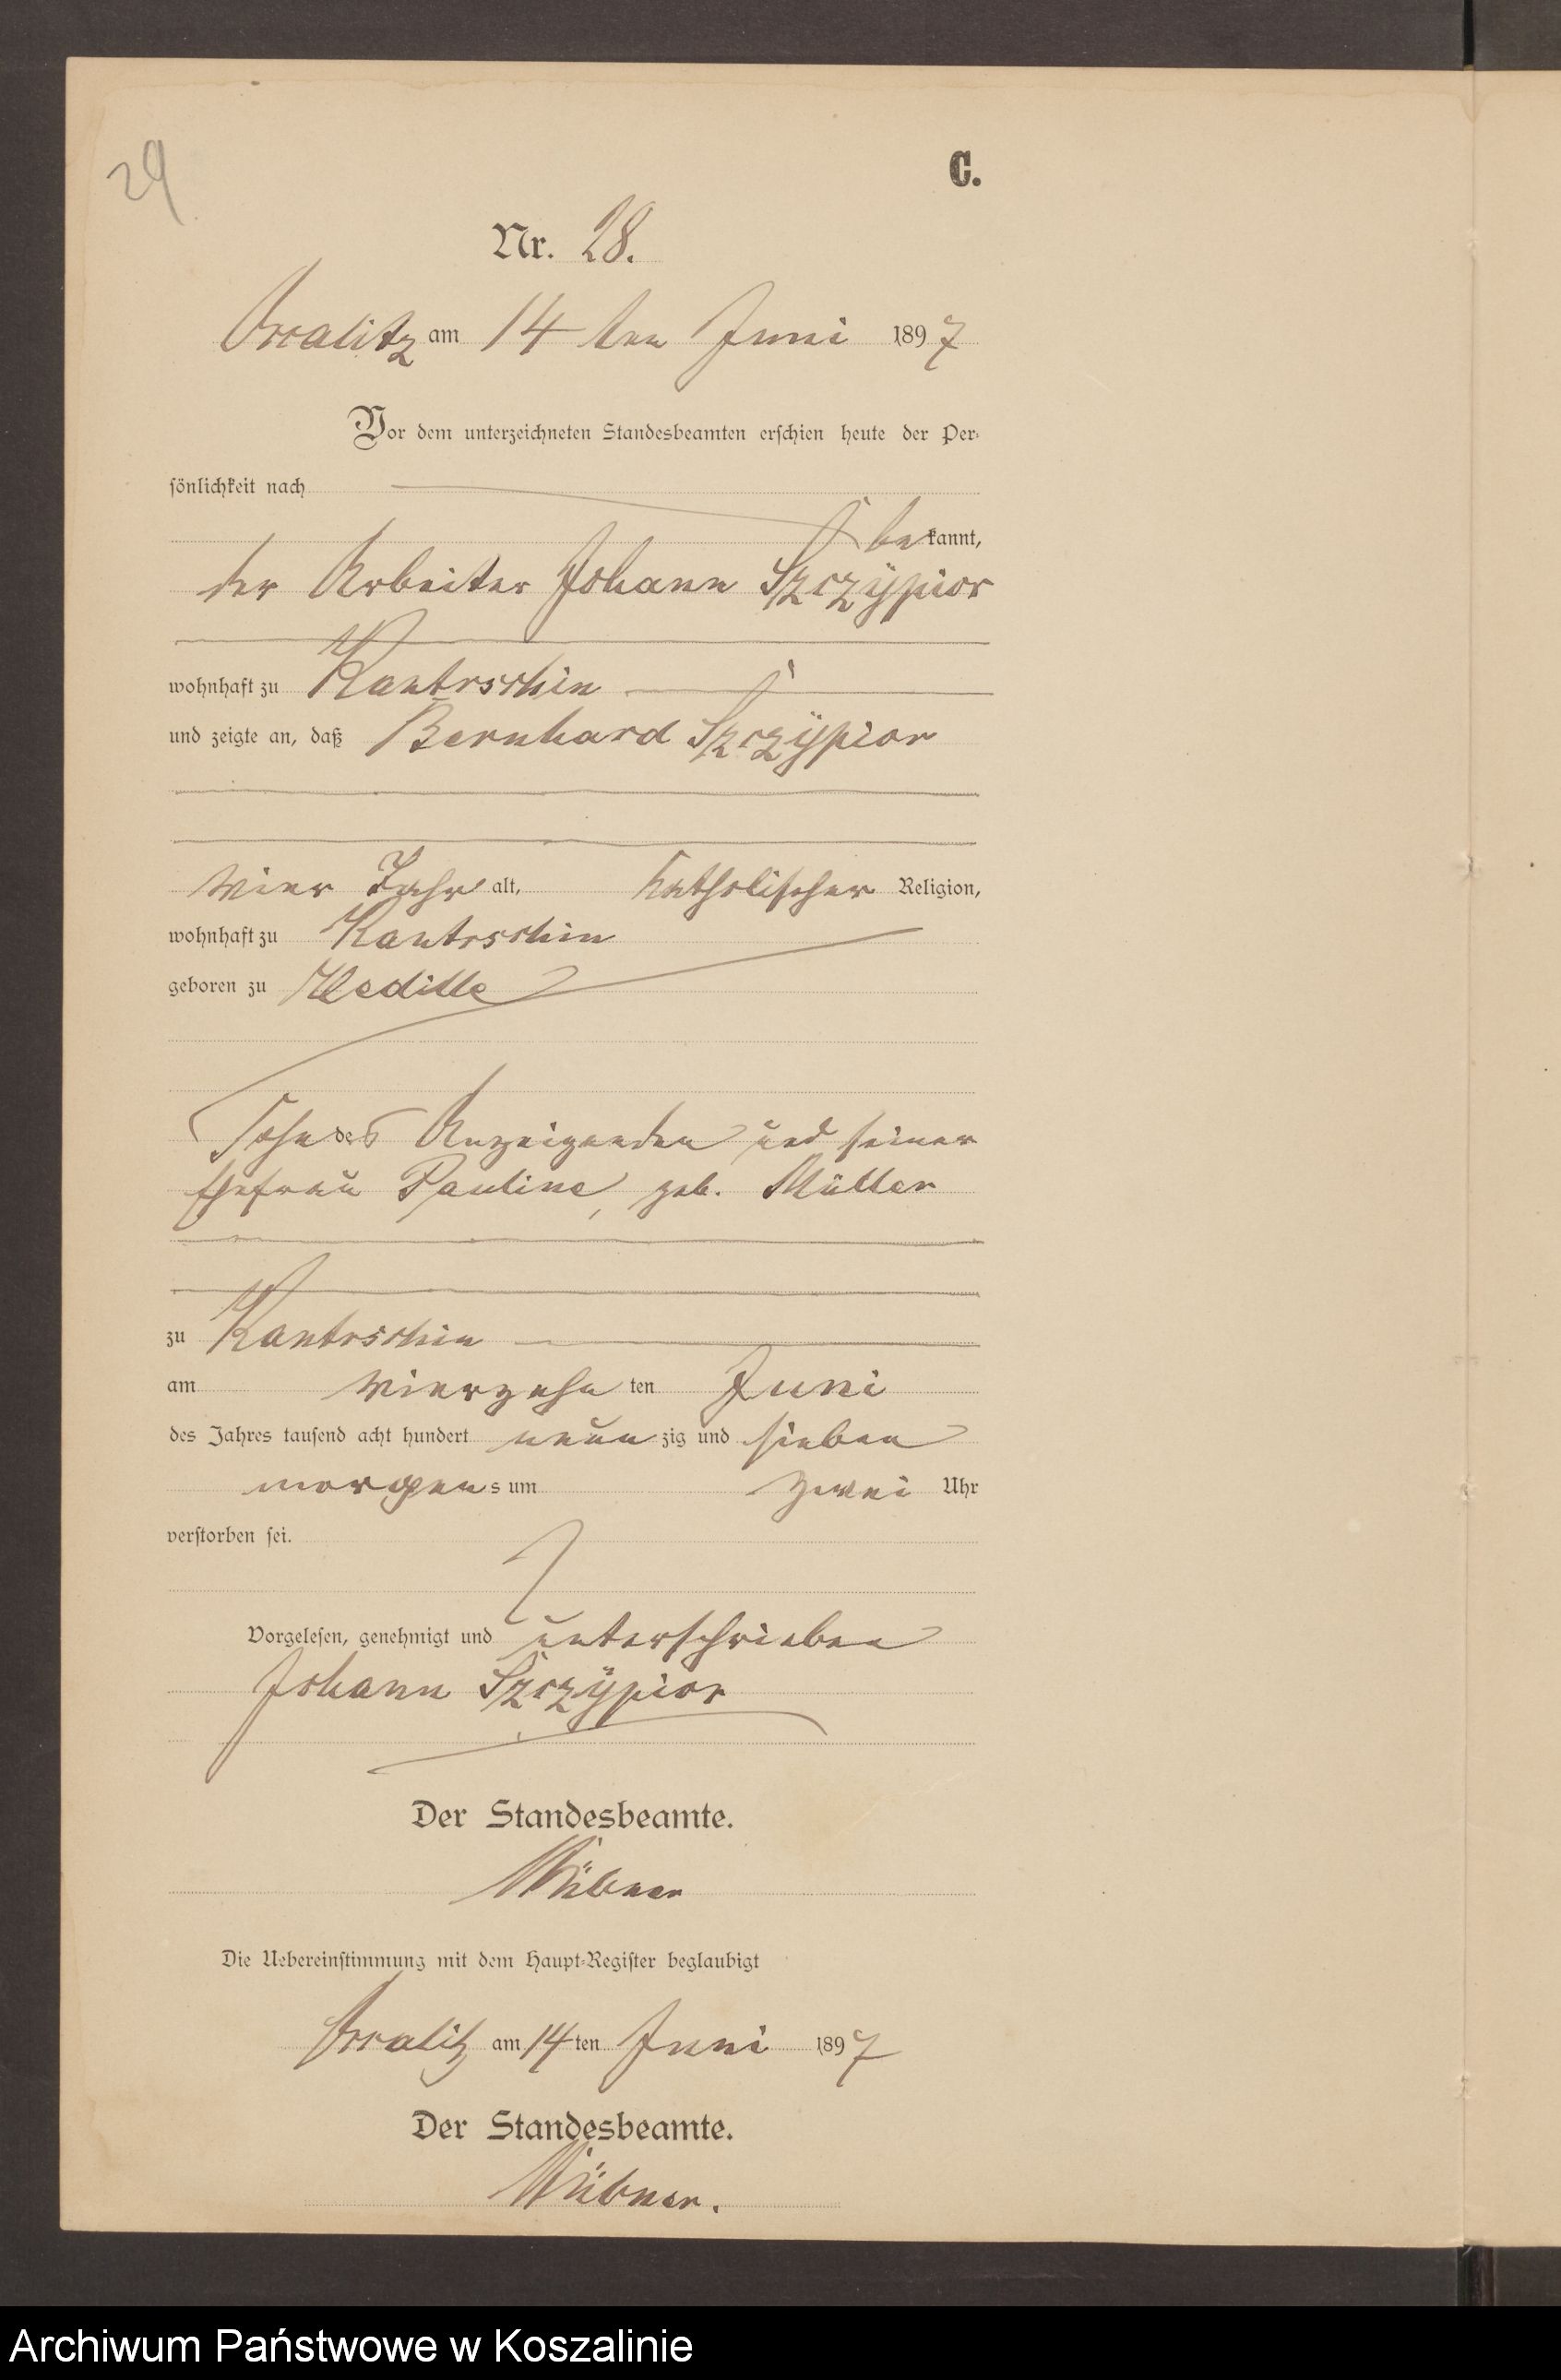 29
C.
Nr. 28.
am 14 ten Juni 1897
Vor dem unterzeichneten Standesbeamten erschien heute der Per-
sönlichkeit nach
bekannt,
der Arbeiter Johann Szczÿpior
wohnhaft zu Kantrschin
und zeigte an, daß Bernhard Szczÿpior
vier Jahr alt, katholischer Religion,
wohnhaft zu Kantrschin
geboren zu Kledille
Sohn des Anzeigenden und seiner
Ehefrau Pauline, geb. Müller
zu Kantrschin
am vierzehn ten Juni
des Jahres tausend acht hundert neun zig und sieben
morgens um zwei Uhr
verstorben sei.
Vorgelesen, genehmigt und unterschrieben
Johann Szczÿpior
Der Standesbeamte.
Die Uebereinstimmung mit dem Haupt-Register beglaubigt
am 14 ten Juni 1897
Der Standesbeamte.
Archiwum Państwowe w Koszalinie